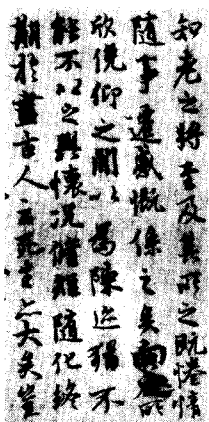 知老之將至及其所之既惓情
隨事遷感慨係之矣向之所
欣俛仰之閒以為陳迹猶不
能不以之興懷況脩短隨化終
期於盡古人云死生亦大矣豈